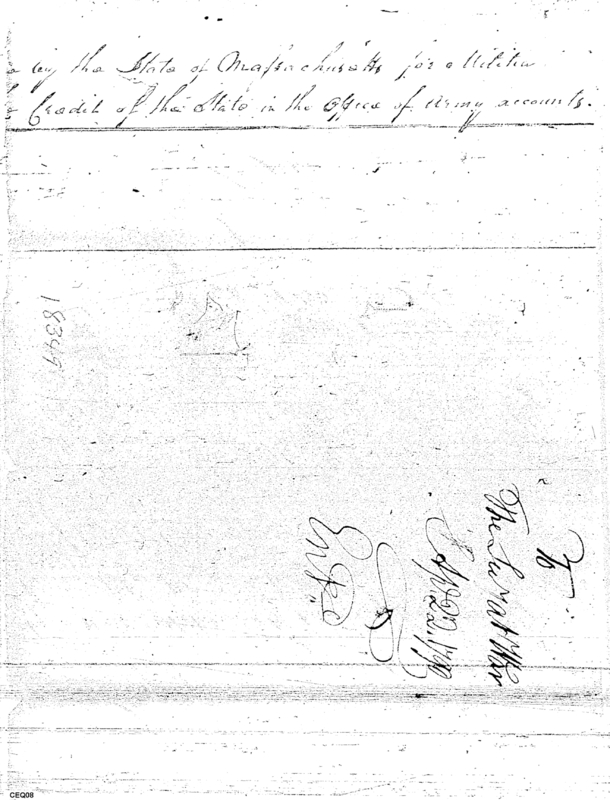 by the State of Massachusetts for Militia
Credit of the State in the Office of Army accounts.
18344
To
The Sec at War
Entd
CEQ08